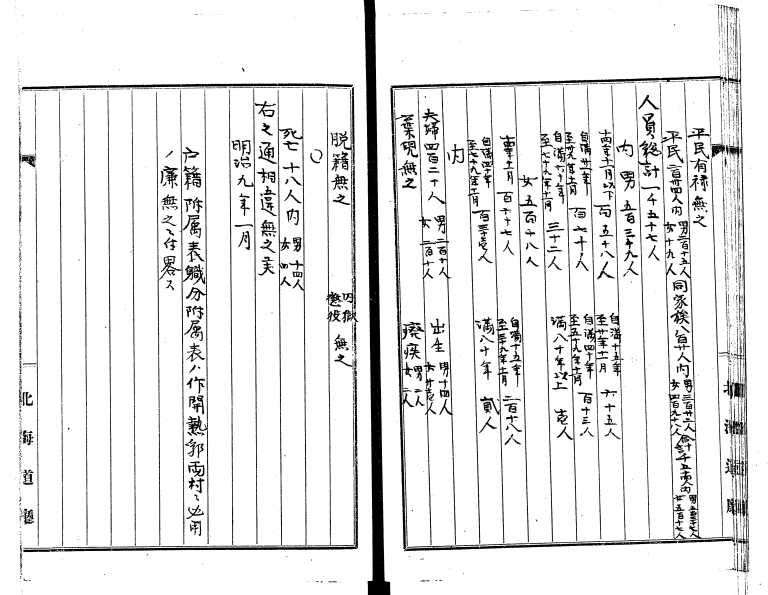 平民有禄無之
平民二百卅四人内 男二百十五人 女十九人 同家族八百廿人内 男三百廿二人 女四百九十八人
人員総計一千五十七人
内 男五百三十九人
十四年十一月以下 百五十八人
自満十五年 至廿年十一月 六十五人
自満廿一年 至廿九年十一月 百七十人
自満四十年 至五十九年十一月 百十三人
自満六十年 至七十九年十一月 三十二人
満八十年以上 壱人
女五百十八人
十四年十一月 百十七人
自満十五年 至三十九年十一月 二百十八人
自満四十年 至七十九年十一月
満八十年 貳人
内
夫婦四百二十人 男二百十人 女二百十人
出生 男十四人
棄児無之
廃疾 男二人 女二人
脱籍無之
囚獄 懲役 無之
〇
死亡十八人内 男十四人 女四人
右之通相違無之候
明治九年一月
戸籍附属表職分附属表ハ作開熟郭両村
ノ廉無之ニ付畧ス
北海道廳
北海道廳